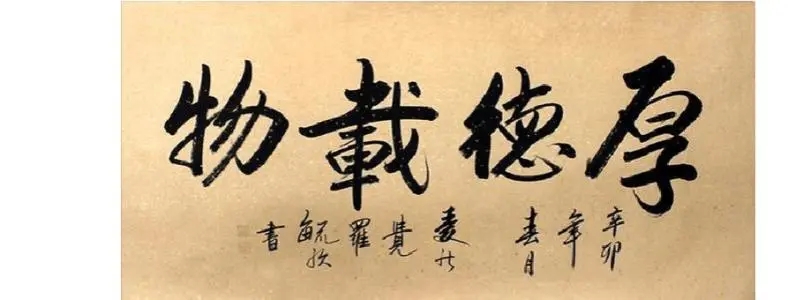 厚德載物
辛卯年春月愛新覺羅毓書